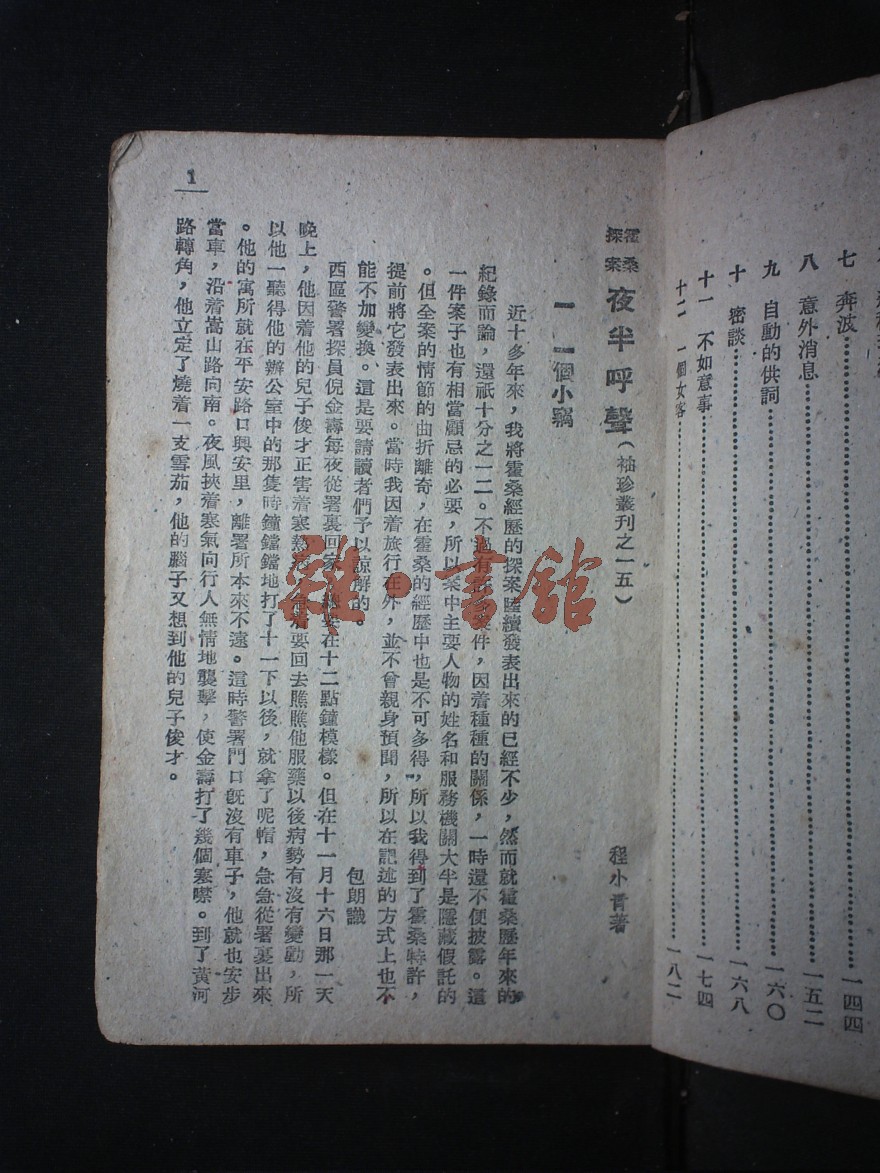 七 奔波……一四四
八 意外消息……一五二
九 自動的供詞……一六〇
十 密談……一六八
十一 不如意事……一七四
十二 一個女客……一八二
霍桑探案 夜半呼聲（袖珍叢刊之一五） 程小青著
一 一個小竊
近十多年來，我將霍桑經歷的探案陸續發表出來的已經不少，然而就霍桑歷年來的
紀錄而論，還祇十分之一二。不過有許多案件，因着種種的關係，一時還不便披露。這
一件案子也有相當顧忌的必要，所以案中主要人物的姓名和服務機關大半是隱藏假託的
。但全案的情節的曲折離奇，在霍桑的經歷中也是不可多得，所以我得到了霍桑特許，
提前將它發表出來。當時我因着旅行在外，並不曾親身預聞，所以在記述的方式上也不
能不加變換。這是要請讀者們予以諒解的。 包朗識
西區警署探員倪金壽每夜從署裏回家，總要在十二點鐘模樣。但在十一月十六日那一天
晚上，他因着他的兒子俊才正害着寒熱病，急着要回去瞧瞧他服藥以後病勢有沒有變動，所
以他一聽得他的辦公室中的那隻時鐘鐺鐺地打了十一下以後，就拿了呢帽，急急從署裏出來
。他的寓所就在平安路口興安里，離署所本來不遠。這時警署門口旣沒有車子，他就也安步
當車，沿着嵩山路向南。夜風挾着寒氣向行人無情地襲擊，使金壽打了幾個寒噤。到了黃河
路轉角，他立定了燒着一支雪茄，他的腦子又想到他的兒子俊才。
1
雜·書館